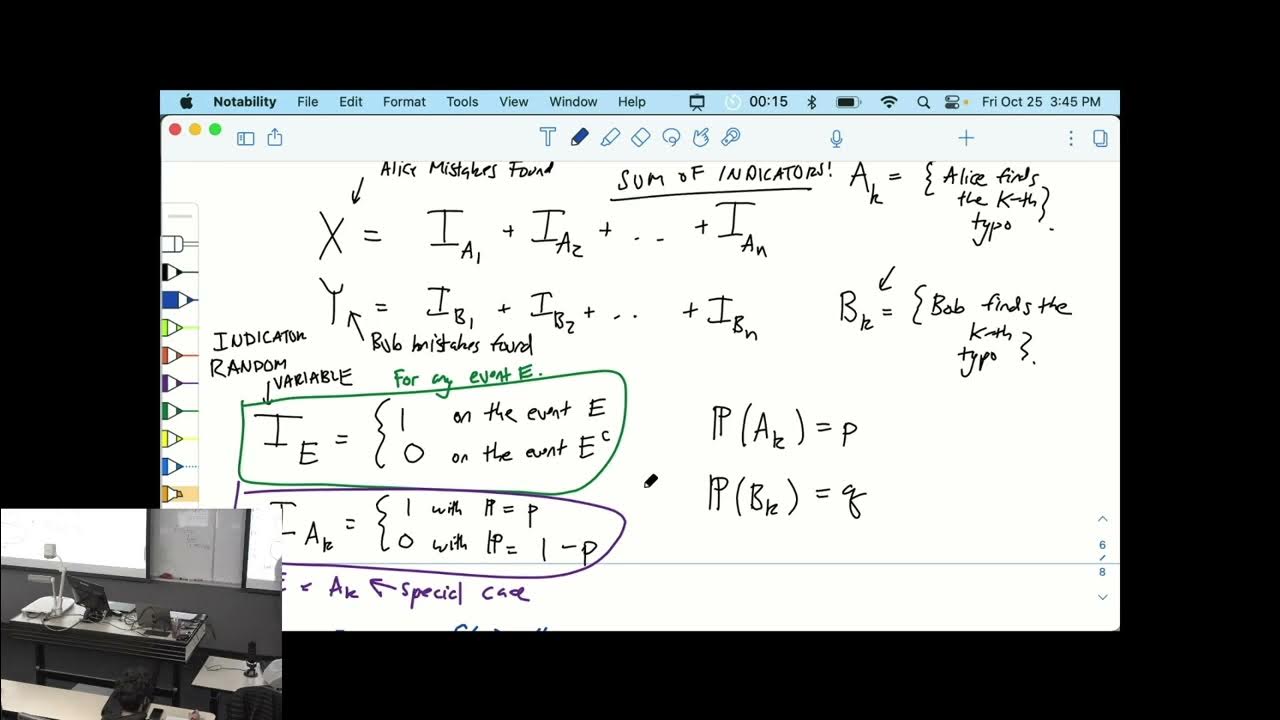 Notability File Edit Format Tools View Window Help 00:15 Fri Oct 25 3:45 PM
Alice Mistakes Found
SUM OF INDICATORS!
A_k = { Alice finds
the k-th
typo }.
X = I_A₁ + I_A₂ + .. + I_Aₙ
Y = I_B₁ + I_B₂ + .. + I_Bₙ
B_k = { Bob finds the
k-th
typo }.
Bob mistakes found
INDICATOR
RANDOM
VARIABLE
For any event E.
I_E = { 1 on the event E
0 on the event E^c
ℙ(A_k) = p
ℙ(B_k) = q
I_A_k = { 1 with ℙ = p
0 with ℙ = 1 - p
E = A_k ← special case
6
/
8